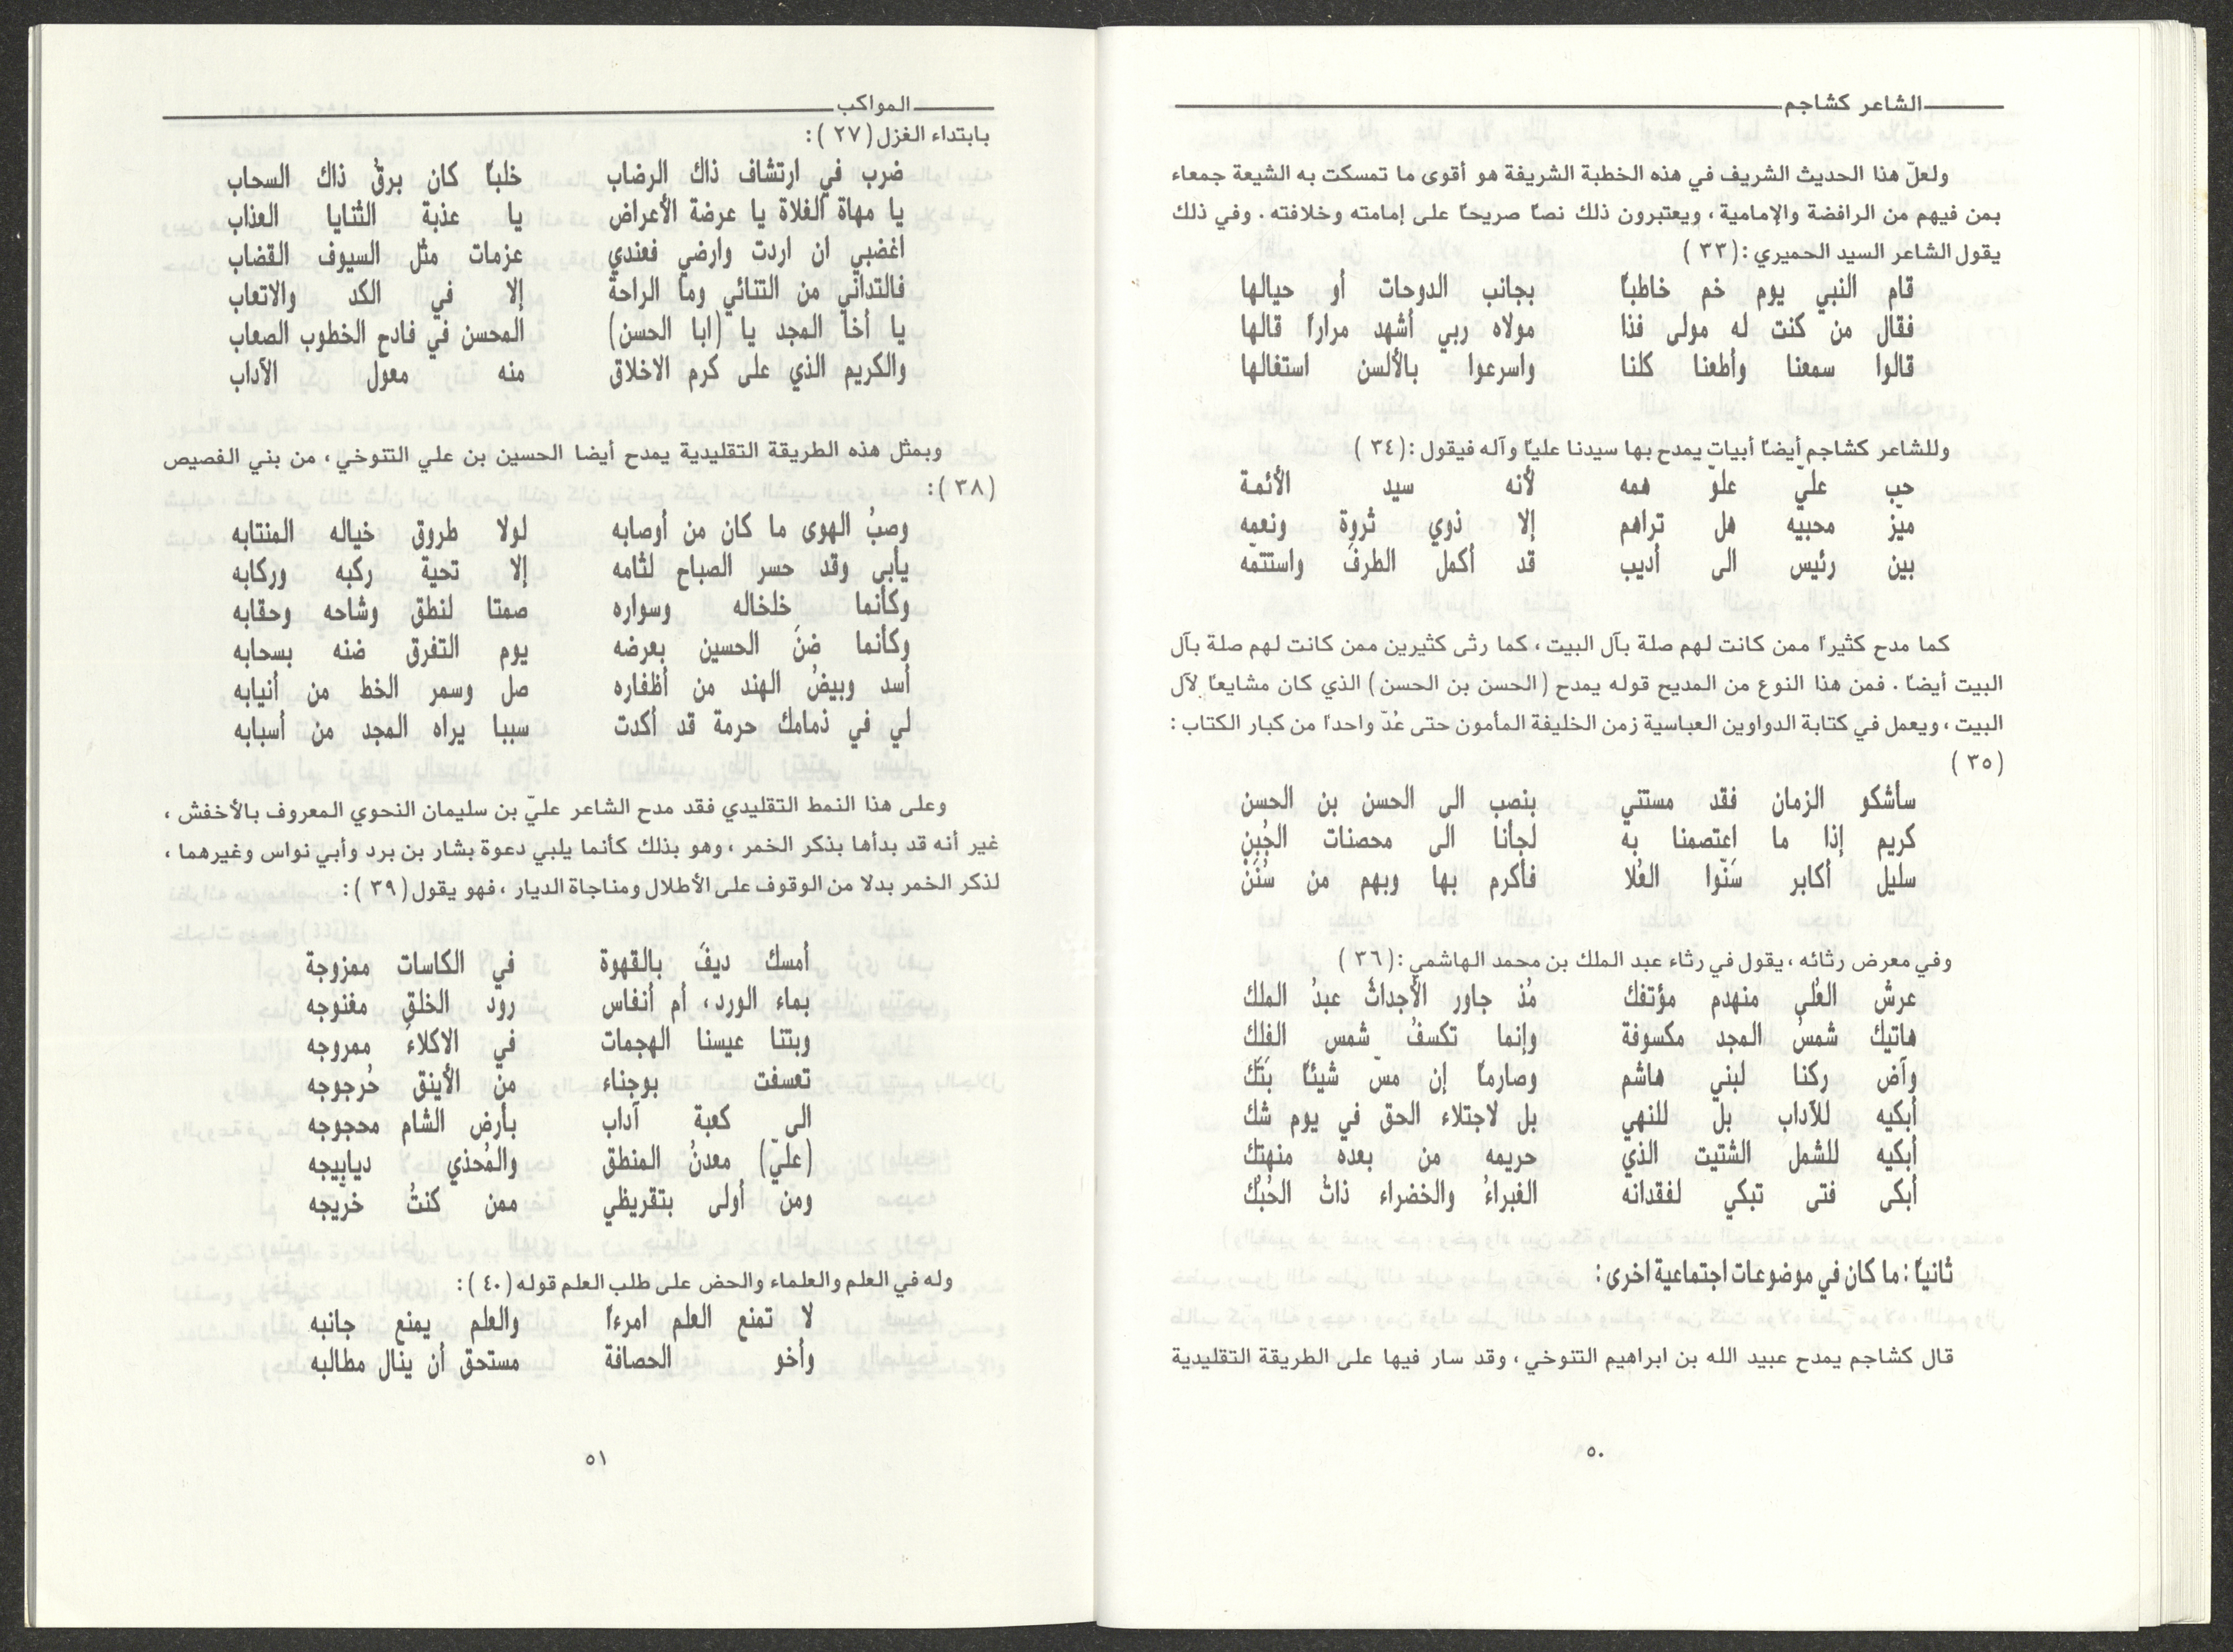 الشاعر كشاجم
ولعلّ هذا الحديث الشريف في هذه الخطبة الشريفة هو أقوى ما تمسكت به الشيعة جمعاء
بمن فيهم من الرافضة والإمامية ، ويعتبرون ذلك نصاً صريحاً على إمامته وخلافته . وفي ذلك
يقول الشاعر السيد الحميري : (٣٣)
قام النبي يوم خم خاطباً بجانب الدوحات أو حيالها
فقال من كنت له مولى فذا مولاه ربي أشهد مراراً قالها
قالوا سمعنا وأطعنا كلنا واسرعوا بالألسن استغالها
وللشاعر كشاجم أيضاً أبيات يمدح بها سيدنا علياً وآله فيقول : (٣٤)
حب عليّ علوّ همه لأنه سيد الأئمة
ميّز محبيّه هل تراهم إلا ذوي ثروة ونعمه
بين رئيس الى أديب قد أكمل الطرف واستتمّه
كما مدح كثيراً ممن كانت لهم صلة بآل البيت ، كما رثى كثيرين ممن كانت لهم صلة بآل
البيت أيضاً . فمن هذا النوع من المديح قوله يمدح (الحسن بن الحسن) الذي كان مشايعاً لآل
البيت ، ويعمل في كتابة الدواوين العباسية زمن الخليفة المأمون حتى عُدّ واحداً من كبار الكتاب :
(٣٥)
سأشكو الزمان فقد مستني بنصب الى الحسن بن الحسن
كريم إذا ما اعتصمنا به لجأنا الى محصنات الجُبن
سليل أكابر سَنّوا العُلا فأكرم بها وبهم من سُنَنْ
وفي معرض رثائه ، يقول في رثاء عبد الملك بن محمد الهاشمي : (٣٦)
عرشُ العُلى منهدم مؤتفك مُذ جاور الأجداثُ عبدُ الملك
هاتيك شمسُ المجد مكسوفة وإنما تكسفُ شمس الفلك
وآض ركنا لبني هاشم وصارماً إن مسّ شيئاً بَتَّك
أبكيه للآداب بل للنهي بل لاجتلاء الحق في يوم شك
أبكيه للشمل الشتيت الذي حريمه من بعده منهتك
أبكى فتى تبكي لفقدانه الغبراءُ والخضراء ذاتُ الحُبُك
ثانياً : ما كان في موضوعات اجتماعية اخرى :
قال كشاجم يمدح عبيد الله بن ابراهيم التنوخي ، وقد سار فيها على الطريقة التقليدية
٥٠
المواكب
بابتداء الغزل (٢٧) :
ضرب في ارتشاف ذاك الرضاب خلباً كان برقُ ذاك السحاب
يا مهاة الفلاة يا عرضة الأعراض يا عذبة الثنايا العذاب
اغضبي ان اردت وارضي فعندي عزمات مثل السيوف القضاب
فالتداني من التنائي وما الراحة إلا في الكد والاتعاب
يا أخا المجد يا (ابا الحسن) المحسن في فادح الخطوب الصعاب
والكريم الذي على كرم الاخلاق منه معول الآداب
وبمثل هذه الطريقة التقليدية يمدح أيضا الحسين بن علي التنوخي ، من بني الفصيص
(٣٨) :
وصبُ الهوى ما كان من أوصابه لولا طروق خياله المنتابه
يأبى وقد حسر الصباح لثامه إلا تحية ركبه وركابه
وكأنما خلخاله وسواره صمتا لنطق وشاحه وحقابه
وكأنما ضَنَ الحسين بعرضه يوم التفرق ضنه بسحابه
أسد وبيضُ الهند من أظفاره صل وسمر الخط من أنيابه
لي في ذمامك حرمة قد أكدت سببا يراه المجد من أسبابه
وعلى هذا النمط التقليدي فقد مدح الشاعر عليّ بن سليمان النحوي المعروف بالأخفش ،
غير أنه قد بدأها بذكر الخمر ، وهو بذلك كأنما يلبي دعوة بشار بن برد وأبي نواس وغيرهما ،
لذكر الخمر بدلا من الوقوف على الأطلال ومناجاة الديار ، فهو يقول (٣٩) :
أمسك ديفَ بالقهوة في الكاسات ممزوجة
بماء الورد، أم أنفاس رود الخلق مغنوجه
وبتنا عيسنا الهجمات في الاكلاءِ ممروجه
تعسفت بوجناء من الأينق حُرجوجه
الى كعبة آداب بأرض الشام محجوجه
(عليّ) معدنُ المنطق والمُحذي ديابيجه
ومن أولى بتقريظي ممن كنتُ خرّيجه
وله في العلم والعلماء والحض على طلب العلم قوله (٤٠) :
لا تمنع العلم امرءاً والعلم يمنع جانبه
وأخو الحصافة مستحق أن ينال مطالبه
٥١